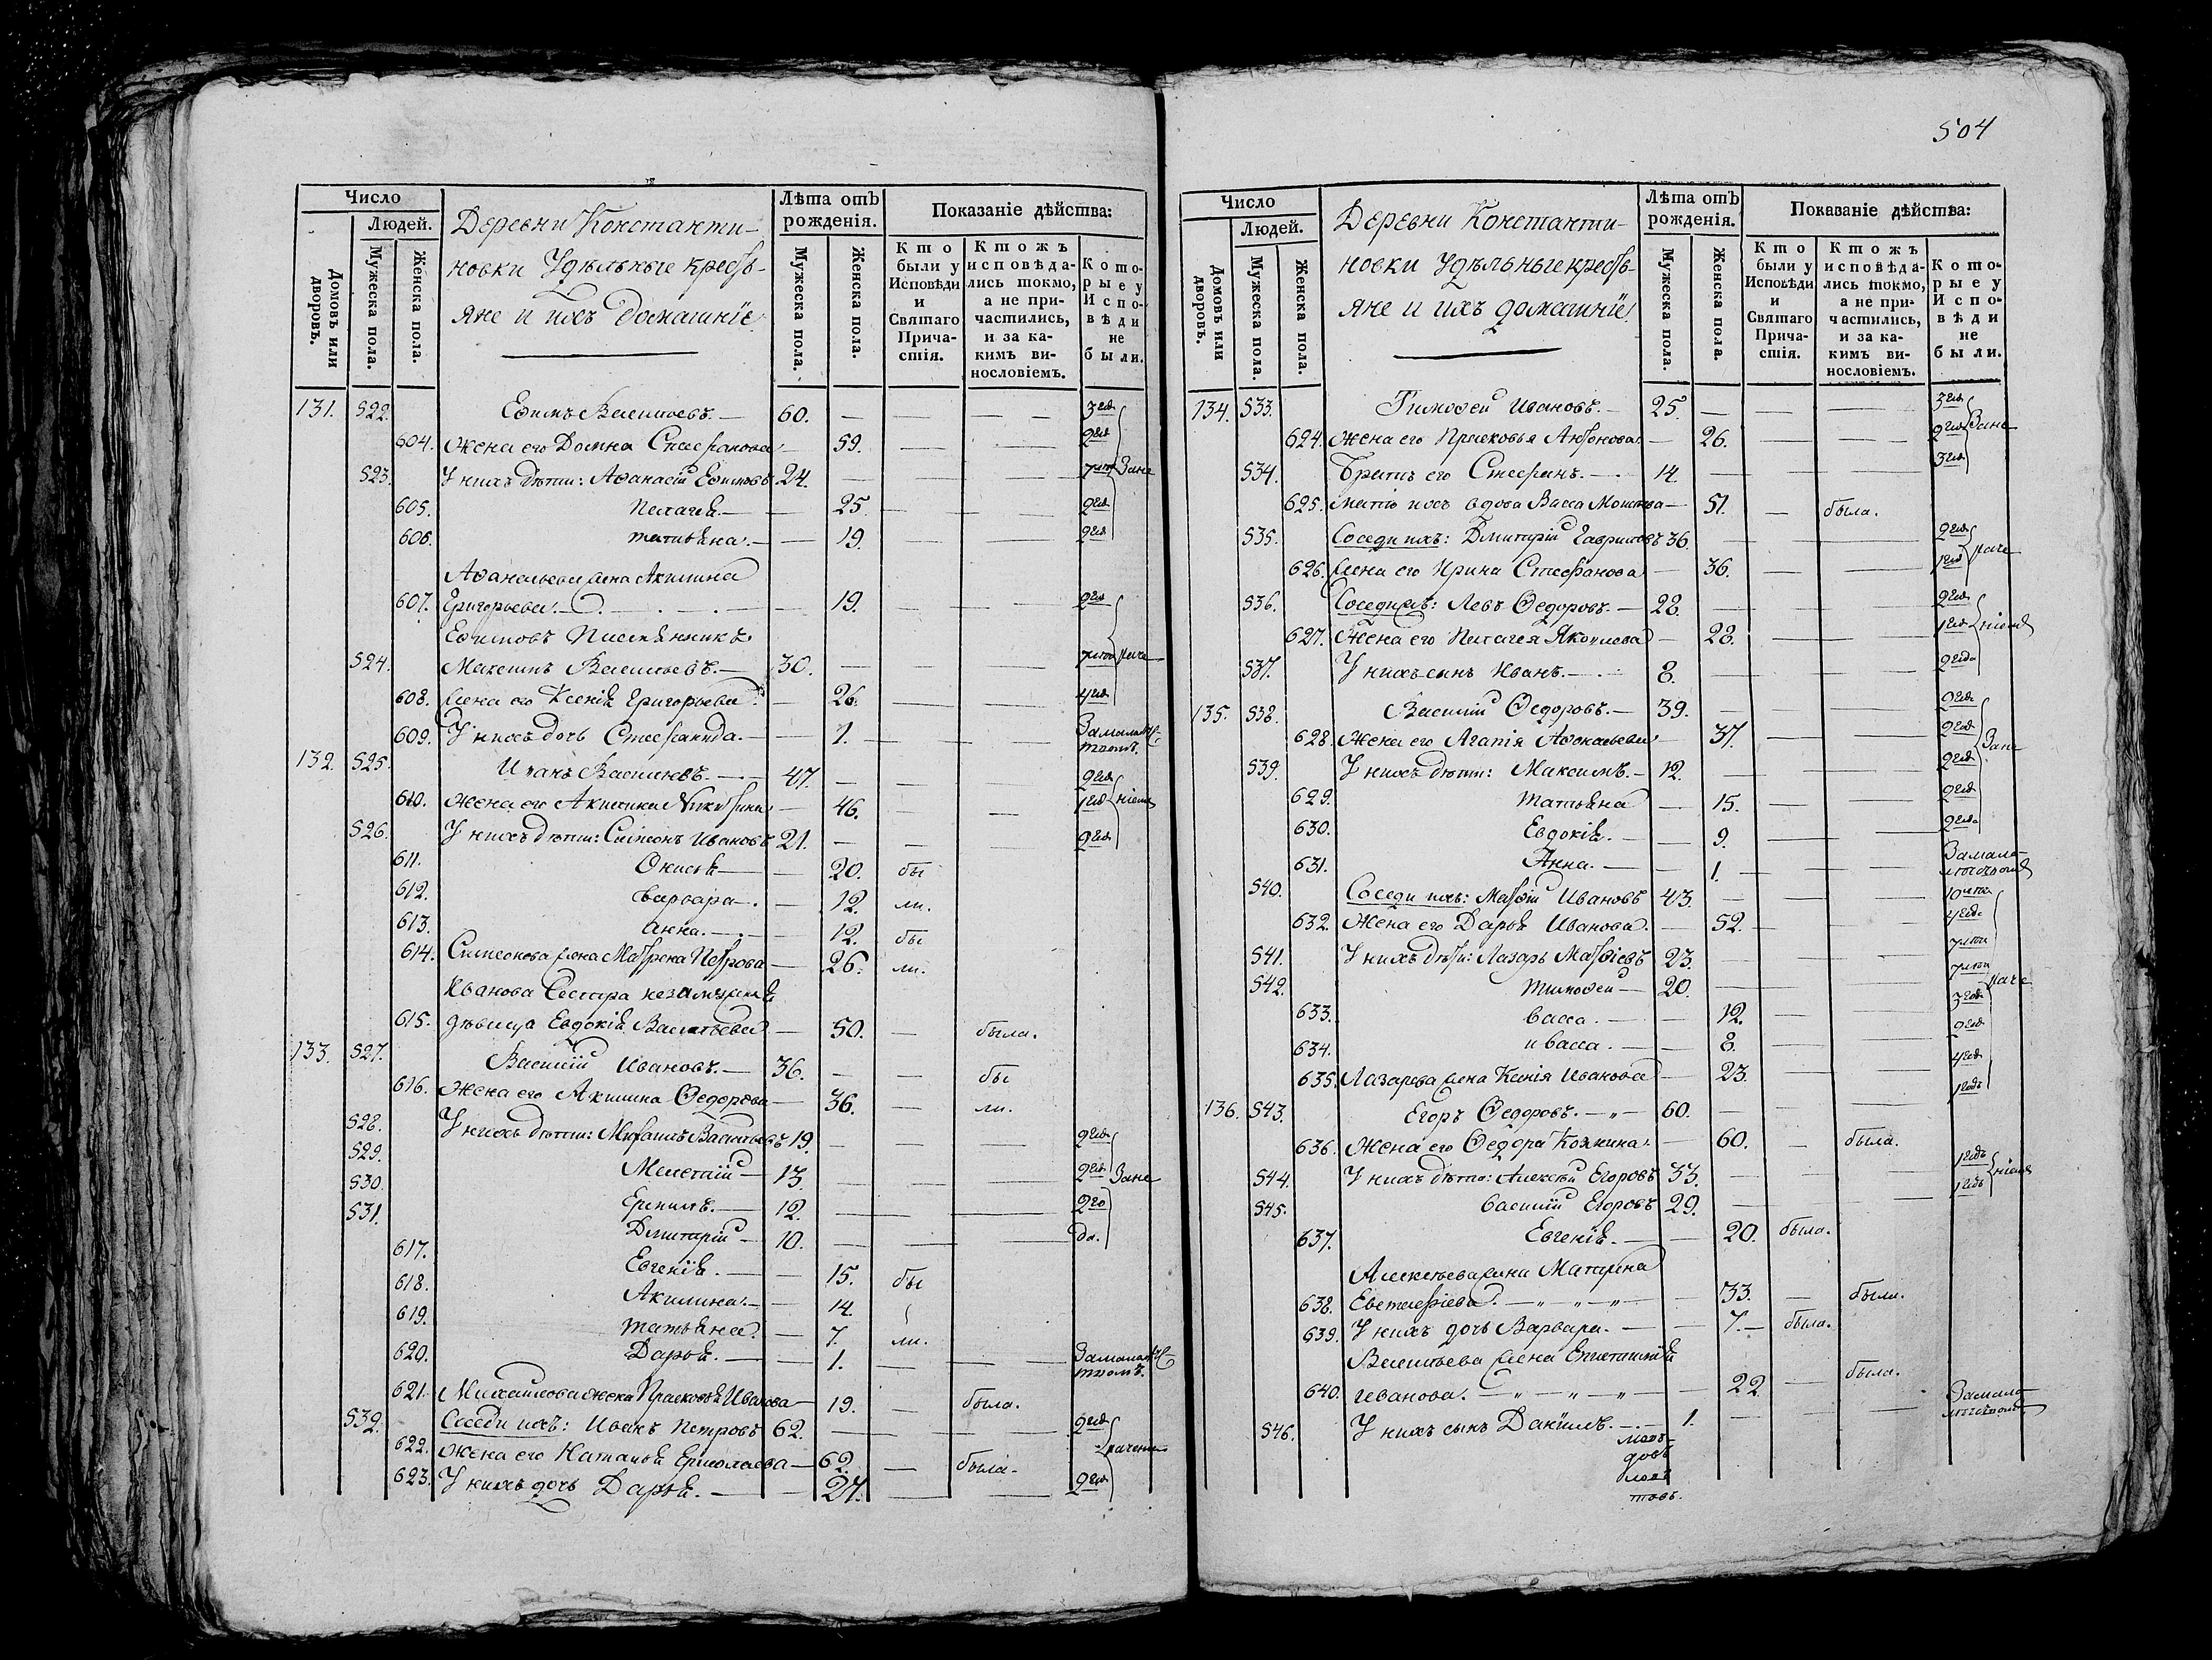 Число
Людей.
Домовъ или дворовъ.
Мужеска пола.
Женска пола.
Деревни Константи-
новки Удѣльные кресть-
яне и ихъ домашніе
Лѣта отъ рожденія.
Мужеска пола.
Женска пола.
Показаніе дѣйства:
Кто были у Исповѣди и Святаго Прича-стія.
Ктожъ исповѣда-лись токмо, а не при-частились, и за ка-кимъ ви-нословіемъ.
Кото-рые у Испо-вѣди не были.
131. 522. Ефимъ Васильевъ. — 60. — — — 3 год
604. жена его Домна Стефанова — 59. — — 2 год
523. У нихъ дѣти: Афанасій Ефимовъ 24. — — — Зане
605. Пелагея. — — 25. — — — 2 год
606. татьяна. — — 19. — — — 2 год
Афанасьева жена Акилина
607. Григорьева. — — 19. — — 2 год
Ефимовъ
524. Максимъ Васильевъ. — 30. — — —
608. жена его Ксенія Григорьева — 26. — — — 4 год
609. У нихъ дочь Стефанида. — — 1. — — Замалолѣ-
тством.
132. 525. Иванъ Васильевъ. — 47. — — — 2 год
610. жена его Акилина Никитина — 46. — — 1 год ніемъ
526. У нихъ дѣти: Симеонъ Ивановъ 21. — — — 2 год
611. — — 20. бы
612. варвара — . — 12. ли.
613. анна. — . — 12. бы
614. Симеонова жена Матрена Петрова — 26. ли.
Иванова Сестра незамужняя
615. дѣвица Евдокія Васильева — 50. — была.
133. 527. Василій Ивановъ. — 36. — — бы
616. жена его Акилина Федорова — 36. — ли.
528. У нихъ дѣти: Михаилъ Васильевъ 19. — — — 2 год
529. Мелетій — 13 — — — 2 год Зане
530. — 12. — — — 2 го
531. Дмитрій — 10. — — — да.
617. Евгенія. — — 15. бы
618. Акилина. — — 14.
619. татьяна. — 7. ли.
620. Дарья. — — 1. — — Замалолѣ-
тством.
621. Михайлова жена Прасковья Иванова — 19. — была.
532. Соседи ихъ: Иванъ Петровъ 62. — — — 2 год
622. жена его Наталья Ермолаева — 62. — была. раченіемъ
623. У нихъ дочь Дарья. — — 27. — — 2 год
504
Число
Людей.
Домовъ или дворовъ.
Мужеска пола.
Женска пола.
Деревни Константи-
новки удѣльные кресть-
яне и ихъ домашніе.
Лѣта отъ рожденія.
Мужеска пола.
Женска пола.
Показаніе дѣйства:
Кто были у Исповѣди и Святаго Прича-стія.
Ктожъ исповѣда-лись токмо, а не при-частились, и за ка-кимъ ви-нословіемъ.
Кото-рые у Испо-вѣди не были.
134. 533. Тимофей Ивановъ. — 25. — — — 3 год
624. жена его Прасковья Антонова. — 26. — — 2 год Зане
534. Братъ его Стефанъ. — 14. — — — 3 год
625. мать ихъ вдова Васса — 51. — была.
535. Соседи ихъ: Дмитрій Гавриловъ 36. — — — 2 год
626. жена его Ирина Стефанова — 36. — — 1 год раче
536. Соседи ихъ: Левъ Федоровъ. — 28. — — — 2 год
627. жена его Пелагея Яковлева — 28. — — 1 год ніемъ
537. У нихъ сынъ Иванъ. — 8. — — — 2 года
135. 538. Василій Федоровъ. — 39. — — — 2 год
628. жена его Агапія Афонасьева — 37. — — 2 год Зане
539. У нихъ дѣти: Максимъ. — 12. — — — 2 год
629. татьяна — 15. — — 2 год
630. Евдокія. — — 9. — — 2 года
631. Анна. — — 1. — — Замало-
540. Соседи ихъ: Матвій Ивановъ 43. — — — 10 лѣт
632. жена его Дарья Иванова. — 52. — — 4 год
541. У нихъ дѣти: Лазарь Матвіевъ 23. — — —
542. тимофей — 20. — — — раче
633. васса. — — 12. — — 3 год
634. и васса. — — 8. — — 2 год
635. Лазарева жена Ксенія Иванова — 23. — — 4 год
136. 543. Егоръ Федоровъ. — „ — 60. — — — 1 годъ
636. жена его Федора Козмина. — 60. — была.
544. У нихъ дѣти: Алексѣй Егоровъ 33. — — — 1 годъ ніемъ
545. василій Егоровъ 29. — — — 1 годъ
637. Евгенія. — — 20. была.
Алексѣева жена Матрена
638. Евстафіева. — „ — „ — „ — 33. — была.
639. У нихъ дочь Варвара. — — 7. — была.
Васильева жена
640. иванова. — „ — „ — „ — 22 — была.
546. У нихъ сынъ Даніилъ. — . — 1. — — — Замало-